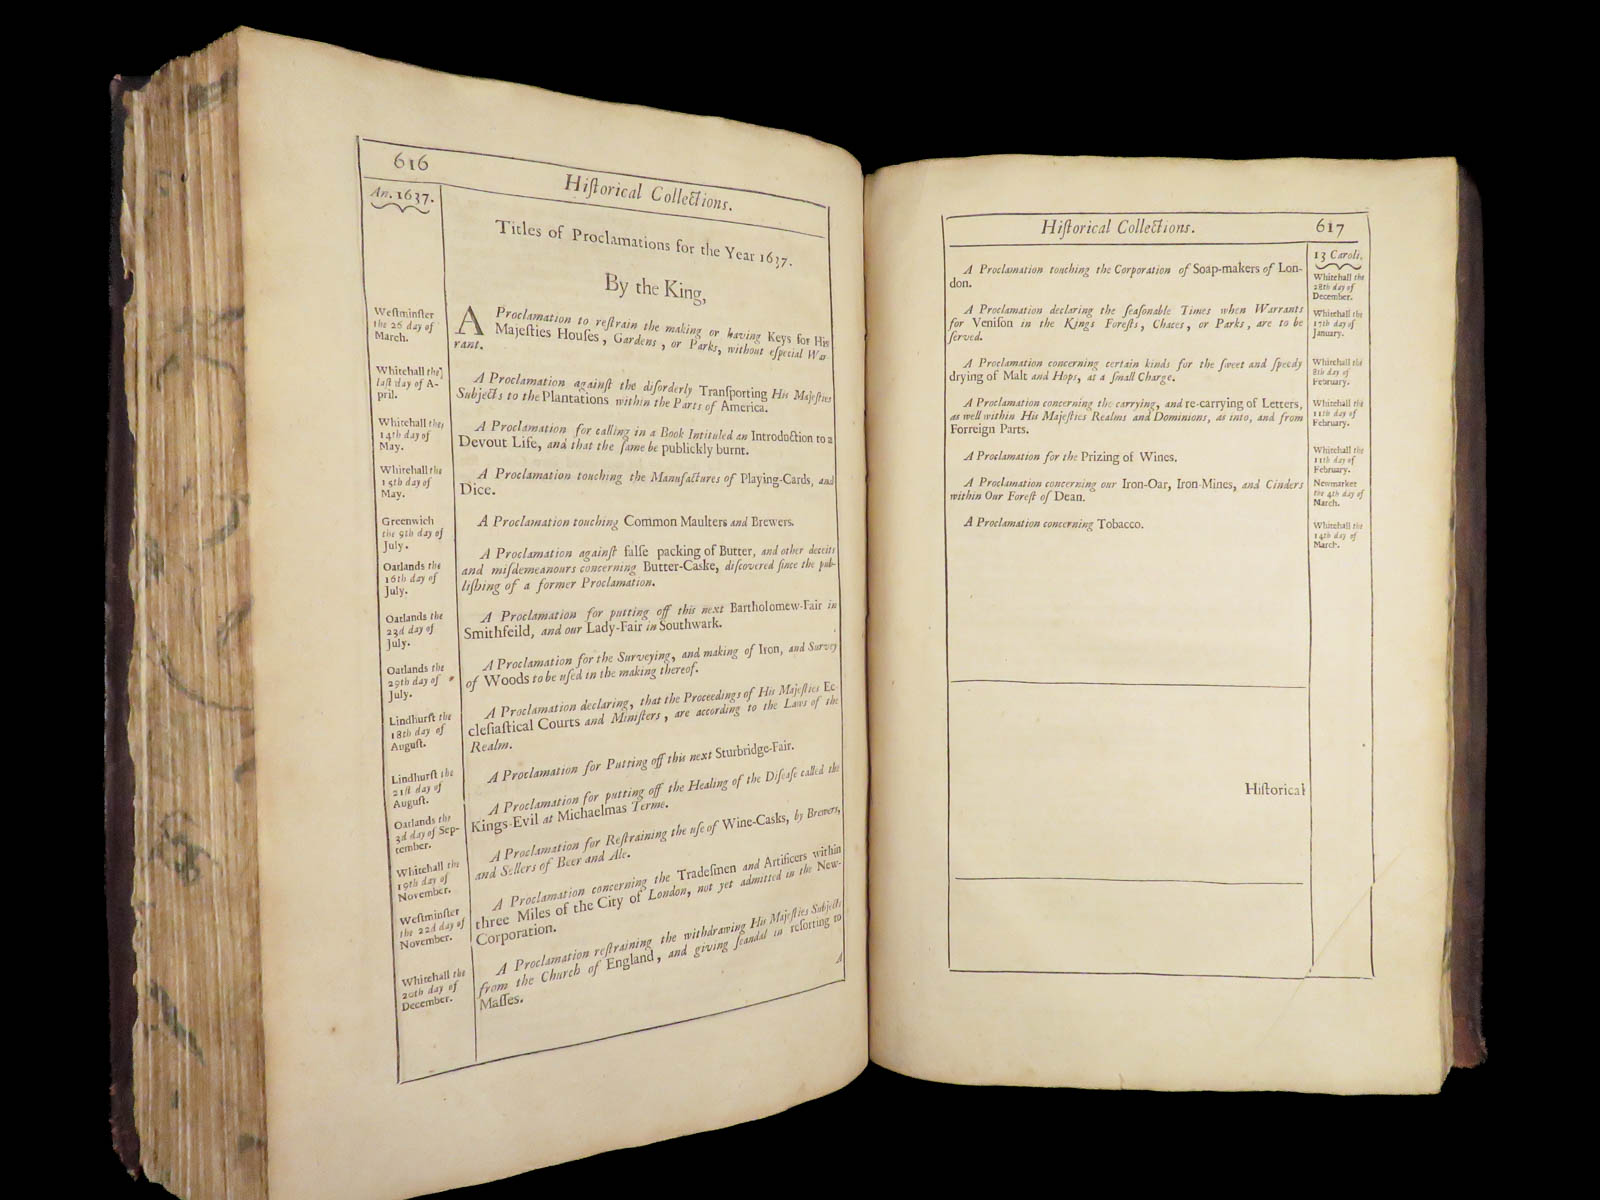 616
Hiſtorical Collections.
An. 1637.
Titles of Proclamations for the Year 1637.
By the King,
Weſtminſter
the 26 day of
March.
A Proclamation to reſtrain the making or having Keys for His
Majeſties Houſes, Gardens, or Parks, without eſpecial War-
rant.
Whitehall the
laſt day of A-
pril.
A Proclamation againſt the diſorderly Tranſporting His Majeſties
Subjects to the Plantations within the Parts of America.
Whitehall the
14th day of
May.
A Proclamation for calling in a Book Intituled an Introduction to a
Devout Life, and that the ſame be publickly burnt.
Whitehall the
15th day of
May.
A Proclamation touching the Manufactures of Playing-Cards, and
Dice.
Greenwich
the 9th day of
July.
A Proclamation touching Common Maulters and Brewers.
Oatlands the
16th day of
July.
A Proclamation againſt falſe packing of Butter, and other deceits
and miſdemeanours concerning Butter-Caske, diſcovered ſince the pub-
liſhing of a former Proclamation.
Oatlands the
23d day of
July.
A Proclamation for putting off this next Bartholomew-Fair in
Smithfeild, and our Lady-Fair in Southwark.
Oatlands the
29th day of
July.
A Proclamation for the Surveying, and making of Iron, and Survey
of Woods to be uſed in the making thereof.
Lindhurſt the
18th day of
Auguſt.
A Proclamation declaring, that the Proceedings of His Majeſties Ec-
cleſiaſtical Courts and Miniſters, are according to the Laws of the
Realm.
Lindhurſt the
21ſt day of
Auguſt.
A Proclamation for Putting off this next Sturbridge-Fair.
Oatlands the
3d day of Sep-
tember.
A Proclamation for putting off the Healing of the Diſeaſe called the
Kings-Evil at Michaelmas Terme.
Whitehall the
19th day of
November.
A Proclamation for Reſtraining the uſe of Wine-Casks, by Brewers,
and Sellers of Beer and Ale.
Weſtminſter
the 22d day of
November.
A Proclamation concerning the Tradeſmen and Artificers within
three Miles of the City of London, not yet admitted in the New-
Corporation.
Whitehall the
20th day of
December.
A Proclamation reſtraining the withdrawing His Majeſties Subjects
from the Church of England, and giving ſcandal in reſorting to
Maſſes.
A
Hiſtorical Collections.
617
13 Caroli.
A Proclamation touching the Corporation of Soap-makers of Lon-
don.
Whitehall the
28th day of
December.
A Proclamation declaring the ſeaſonable Times when Warrants
for Veniſon in the Kings Foreſts, Chaces, or Parks, are to be
ſerved.
Whitehall the
17th day of
January.
A Proclamation concerning certain kinds for the ſweet and ſpeedy
drying of Malt and Hops, at a ſmall Charge.
Whitehall the
8th day of
February.
A Proclamation concerning the carrying, and re-carrying of Letters,
as well within His Majeſties Realms and Dominions, as into, and from
Forreign Parts.
Whitehall the
11th day of
February.
A Proclamation for the Prizing of Wines.
Whitehall the
11th day of
February.
A Proclamation concerning our Iron-Oar, Iron-Mines, and Cinders
within Our Foreſt of Dean.
Newmarket
the 4th day of
March.
A Proclamation concerning Tobacco.
Whitehall the
14th day of
March.
Hiſtorical